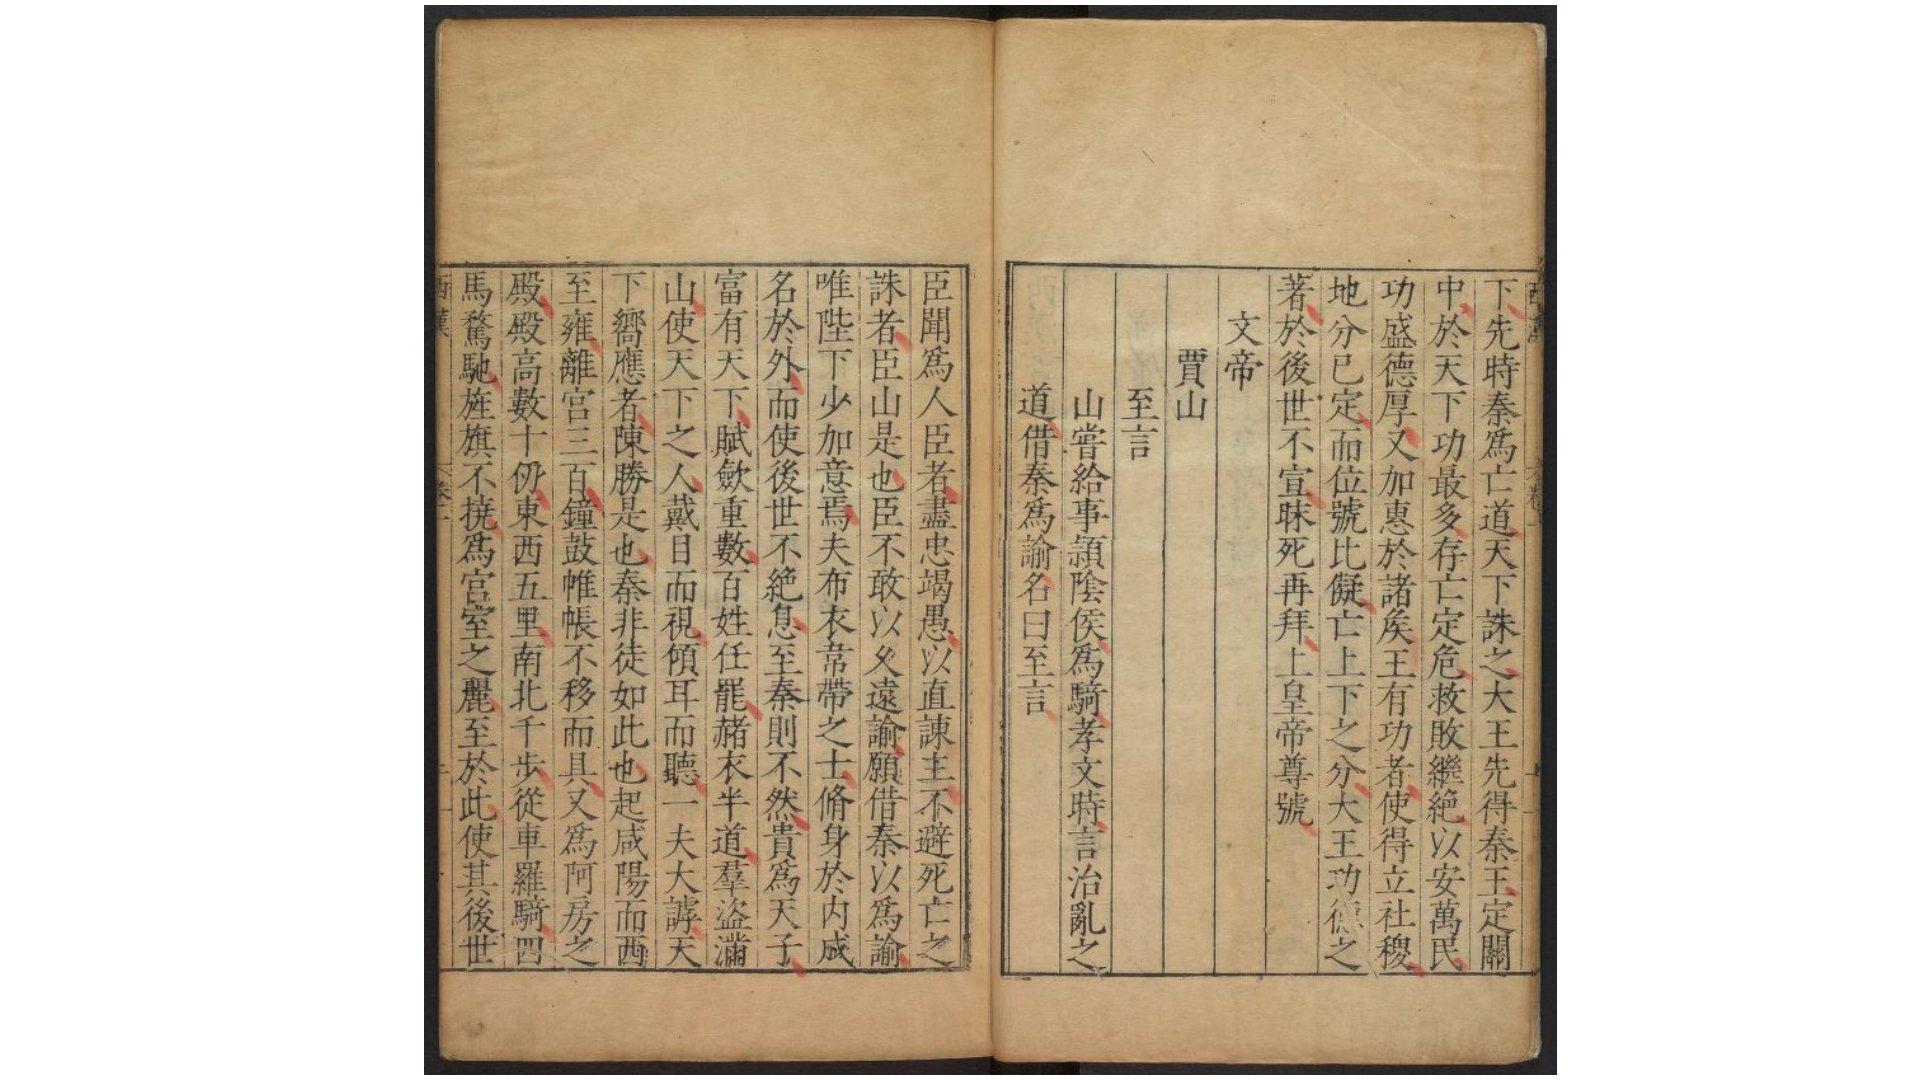 下先時秦爲亡道天下誅之大王先得秦王定關
中於天下功最多存亡定危救敗繼絶以安萬民
功盛德厚又加惠於諸矦王有功者使得立社稷
地分已定而位號比儗亡上下之分大王功德之
著於後世不宣昧死再拜上皇帝尊號
文帝
賈山
至言
山嘗給事頴陰侯爲騎孝文時言治亂之
道借秦爲諭名曰至言
臣聞爲人臣者盡忠竭愚以直諫主不避死亡之
誅者臣山是也臣不敢以久遠諭願借秦以爲諭
唯陛下少加意焉夫布衣韋帶之士脩身於内成
名於外而使後世不絶息至秦則不然貴爲天子
富有天下賦歛重數百姓任罷赭衣半道羣盜滿
山使天下之人戴目而視傾耳而聽一夫大謼天
下嚮應者陳勝是也秦非徒如此也起咸陽而西
至雍離宮三百鐘鼓帷帳不移而具又爲阿房之
殿殿高數十仞東西五里南北千步從車羅騎四
馬騖馳旌旗不撓爲宮室之麗至於此使其後世
西漢
卷二